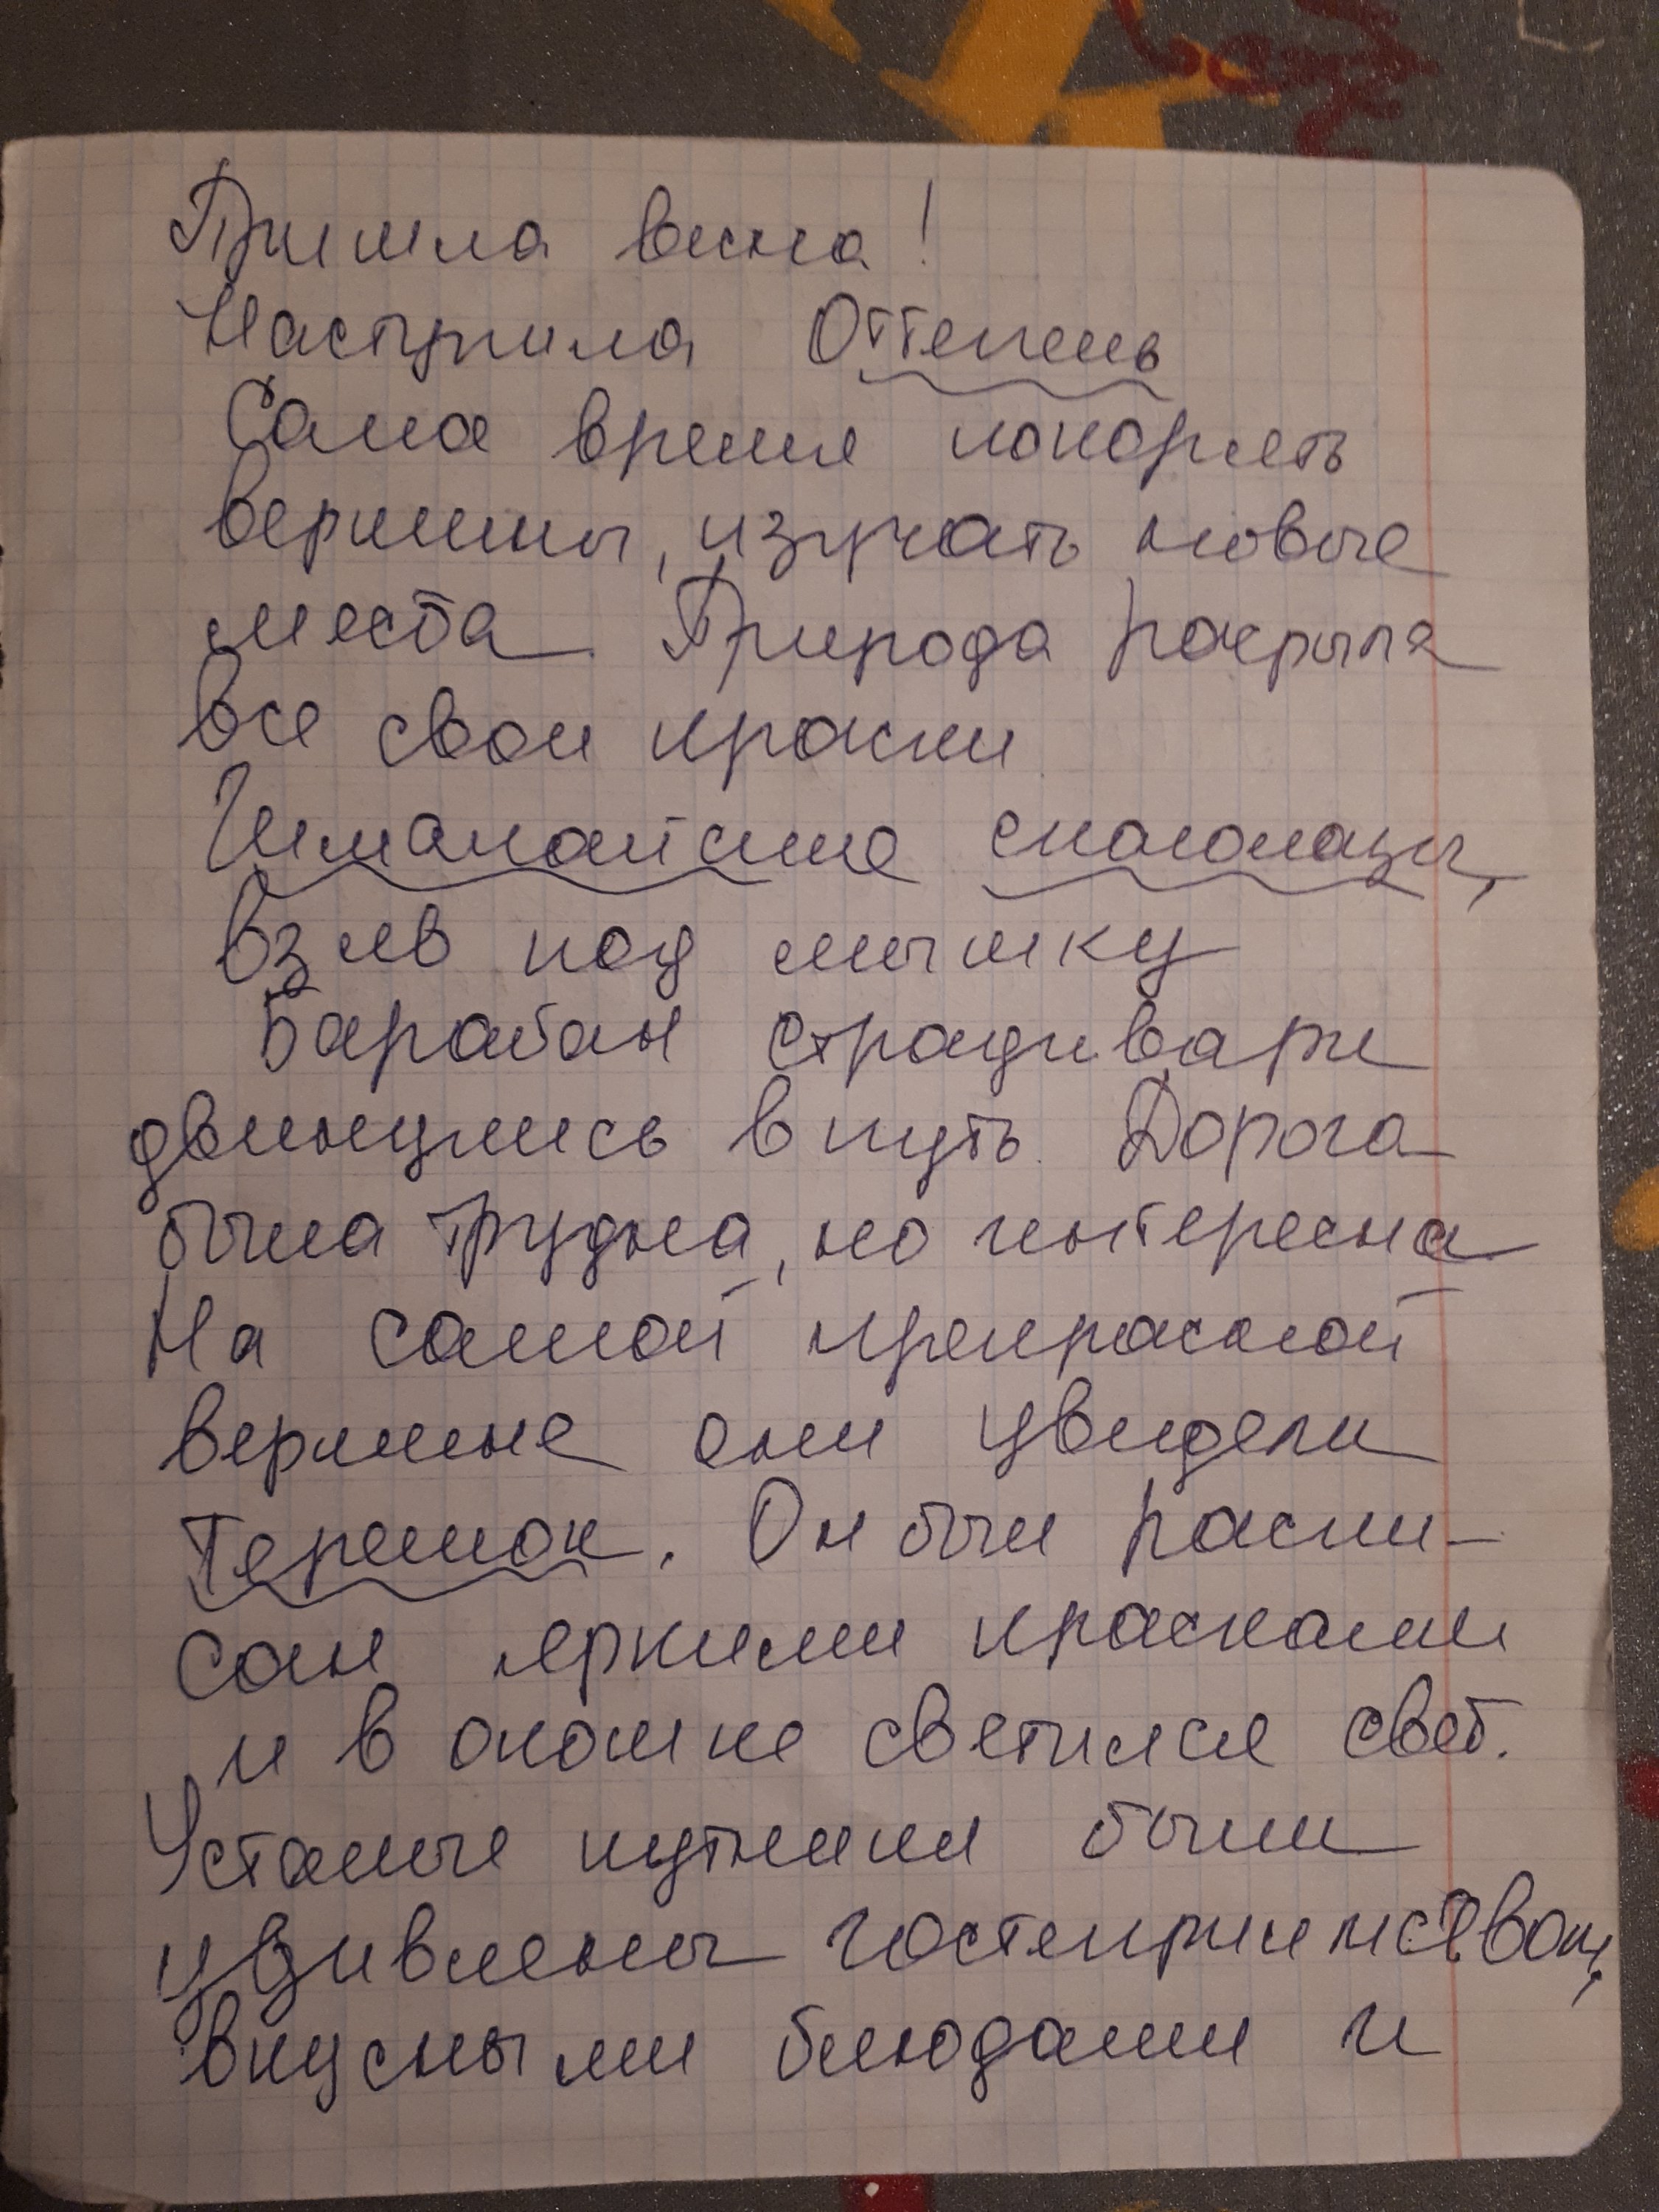 Пришла весна!
Наступила Оттепель
Само время покорять
вершины, изучать новые
места. Природа раскрыла
все свои краски
Гималайские скалолазы,
взяв под мышку
Барабан страдивари
двинулись в путь. Дорога
была трудна, но интересна
На самой прекрасной
вершине они увидели
Теремок. Он был распи-
сан яркими красками
и в окошке светился свет.
Усталые путники были
удивлены гостеприимством,
вкусными блюдами и